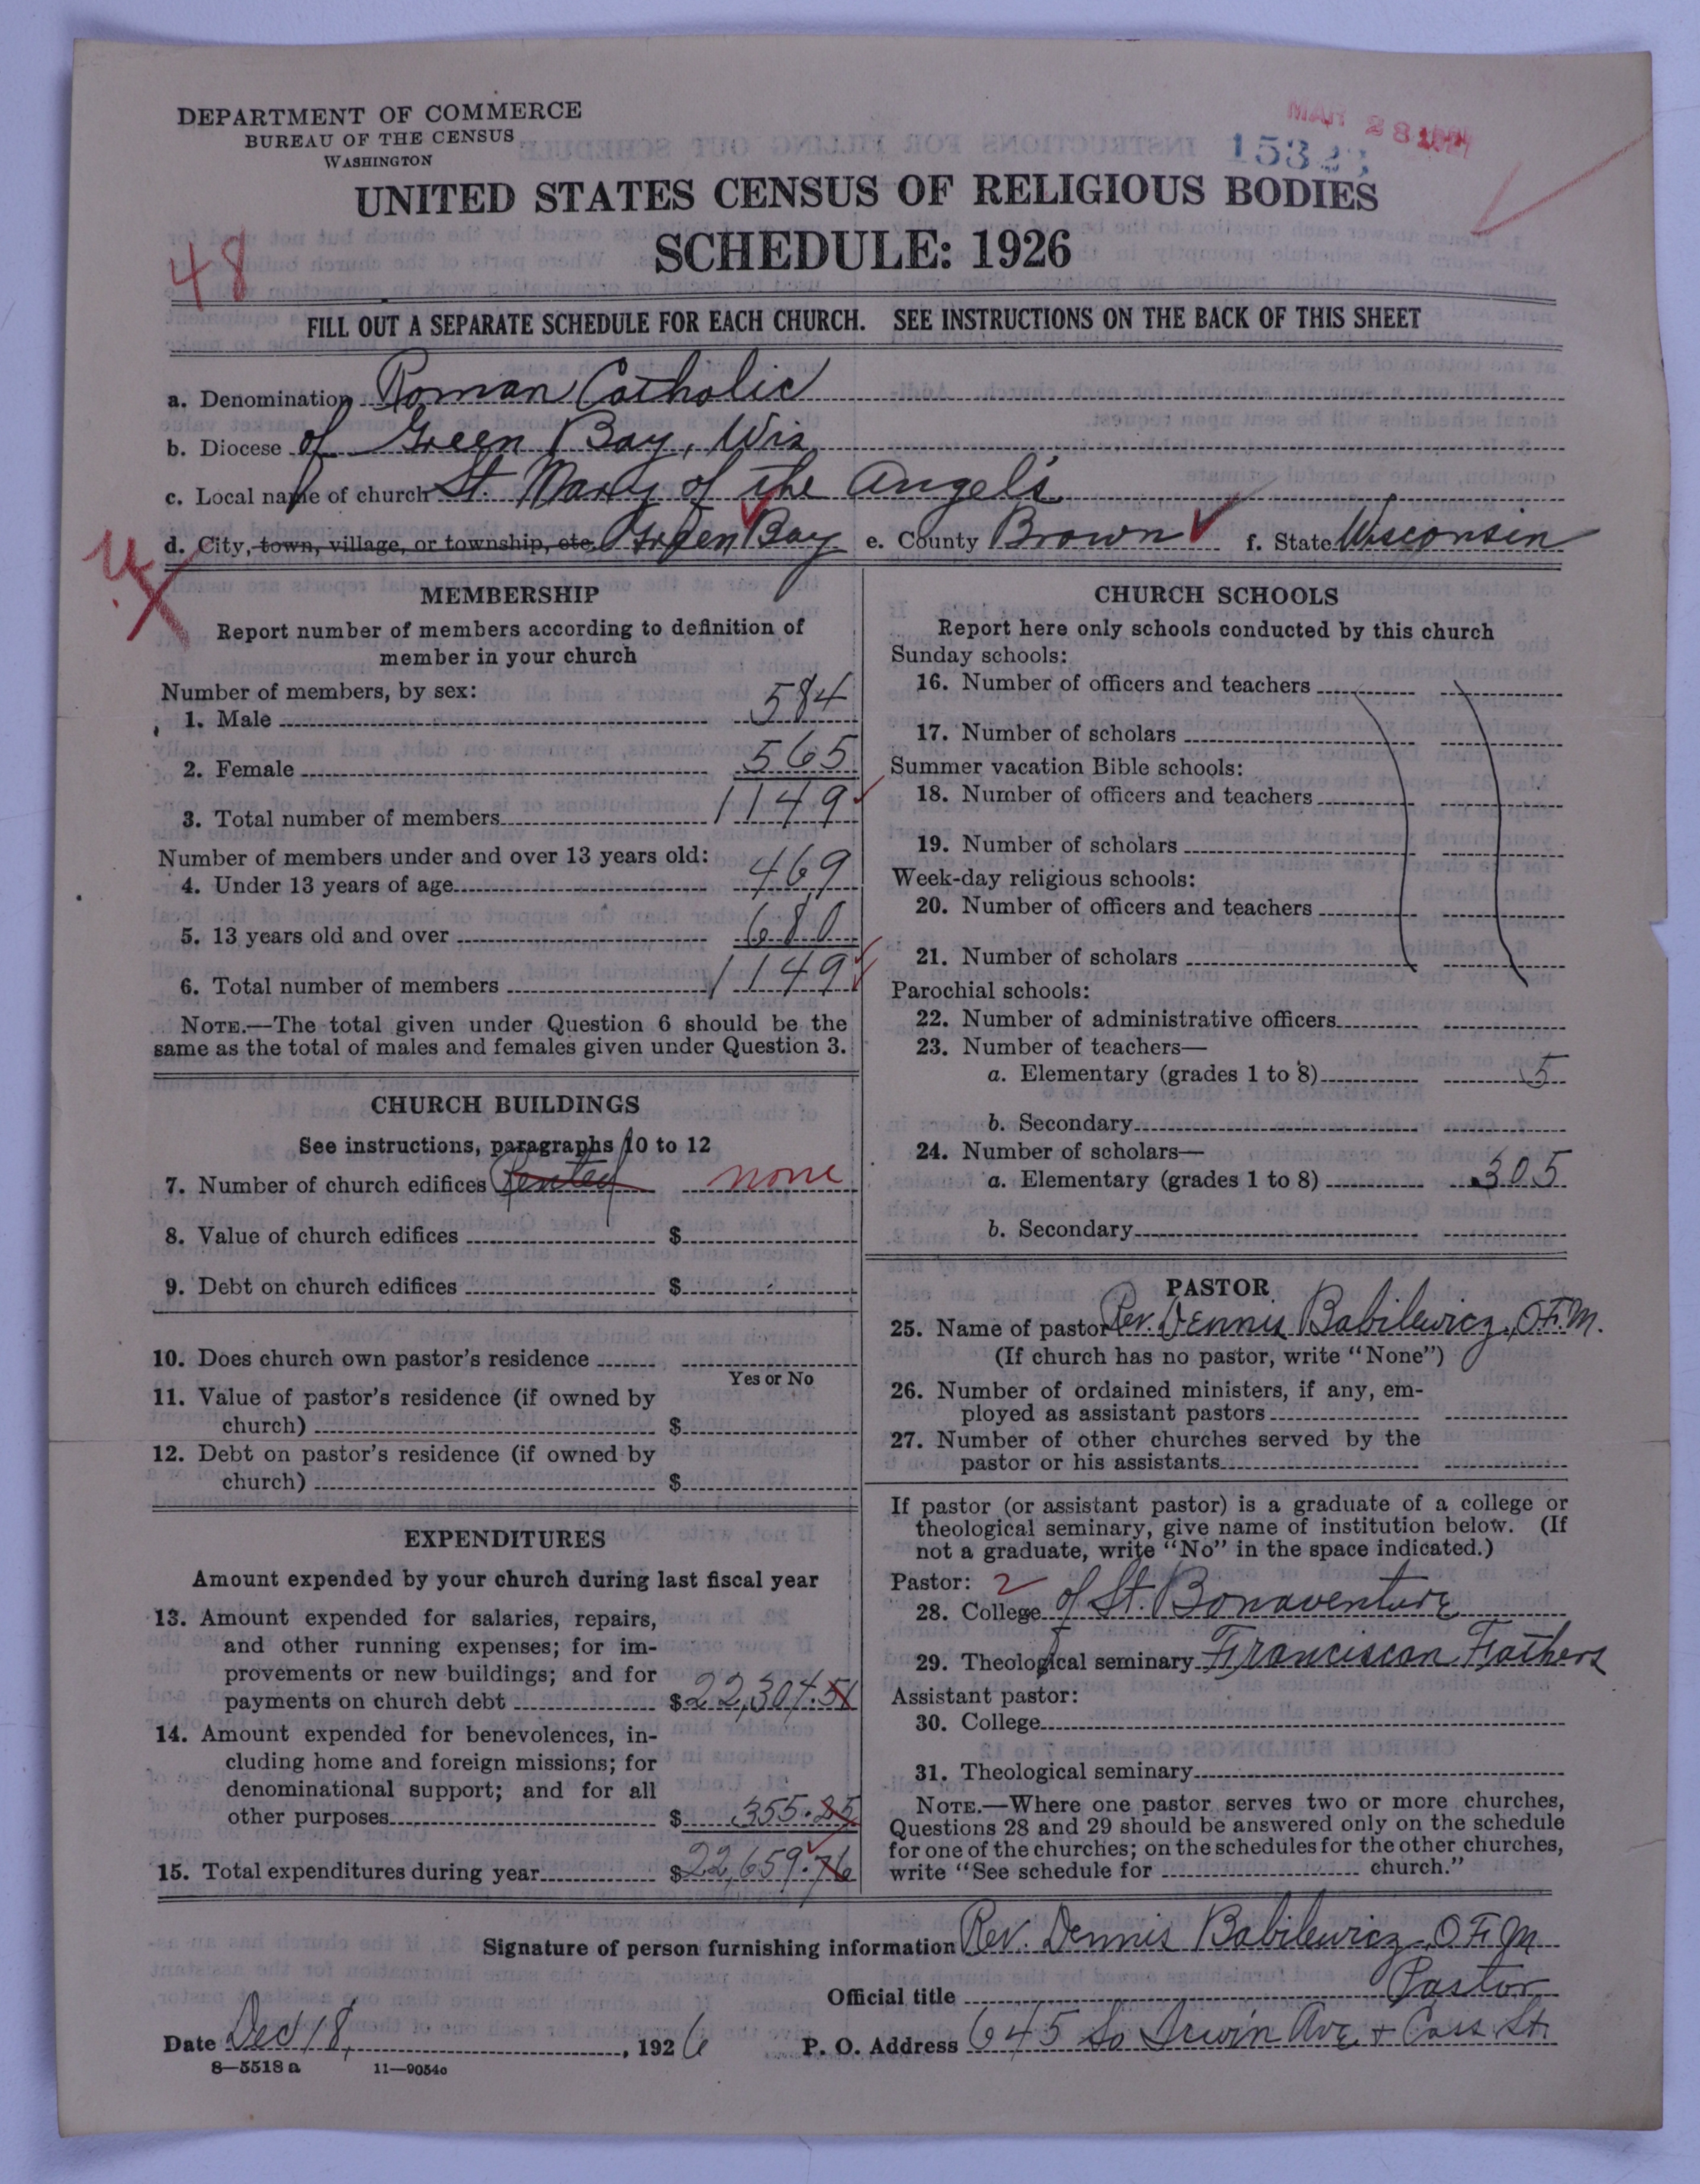 DEPARTMENT OF COMMERCE
BUREAU OF THE CENSUS
WASHINGTON
MAR 28
UNITED STATES CENSUS OF RELIGIOUS BODIES
SCHEDULE: 1926
48
FILL OUT A SEPARATE SCHEDULE FOR EACH CHURCH. SEE INSTRUCTIONS ON THE BACK OF THIS SHEET
a. Denomination Roman Catholic
b. Diocese of Green Bay, Wis
c. Local name of church St. Mary of the Angels
d. City, town, village, or township, etc. Green Bay e. County Brown f. State Wisconsin
MEMBERSHIP
Report number of members according to definition of
member in your church
Number of members, by sex:
1. Male 584
2. Female 565
3. Total number of members 1149
Number of members under and over 13 years old:
4. Under 13 years of age 469
5. 13 years old and over 680
6. Total number of members 1149
NOTE.—The total given under Question 6 should be the
same as the total of males and females given under Question 3.
CHURCH BUILDINGS
See instructions, paragraphs 10 to 12
7. Number of church edifices Rented none
8. Value of church edifices $
9. Debt on church edifices $
10. Does church own pastor's residence
Yes or No
11. Value of pastor's residence (if owned by
church) $
12. Debt on pastor's residence (if owned by
church) $
EXPENDITURES
Amount expended by your church during last fiscal year
13. Amount expended for salaries, repairs,
and other running expenses; for im-
provements or new buildings; and for
payments on church debt $22,304.51
14. Amount expended for benevolences, in-
cluding home and foreign missions; for
denominational support; and for all
other purposes $ 355.25
15. Total expenditures during year $22,659.76
CHURCH SCHOOLS
Report here only schools conducted by this church
Sunday schools:
16. Number of officers and teachers
17. Number of scholars
Summer vacation Bible schools:
18. Number of officers and teachers
19. Number of scholars
Week-day religious schools:
20. Number of officers and teachers
21. Number of scholars
Parochial schools:
22. Number of administrative officers
23. Number of teachers—
a. Elementary (grades 1 to 8) 5
b. Secondary
24. Number of scholars—
a. Elementary (grades 1 to 8) 305
b. Secondary
PASTOR
25. Name of pastor Rev. Dennis Babilewicz, O.F.M.
(If church has no pastor, write "None")
26. Number of ordained ministers, if any, em-
ployed as assistant pastors
27. Number of other churches served by the
pastor or his assistants
If pastor (or assistant pastor) is a graduate of a college or
theological seminary, give name of institution below. (If
not a graduate, write "No" in the space indicated.)
Pastor: 2
28. College of St. Bonaventure
29. Theological seminary Franciscan Fathers
Assistant pastor:
30. College
31. Theological seminary
NOTE.—Where one pastor serves two or more churches,
Questions 28 and 29 should be answered only on the schedule
for one of the churches; on the schedules for the other churches,
write "See schedule for church."
Signature of person furnishing information Rev. Dennis Babilewicz, O.F.M
Official title Pastor
Date Dec 18, 1926 P. O. Address 645 So Irwin Ave + Cass St.
8—5518 a 11—9054